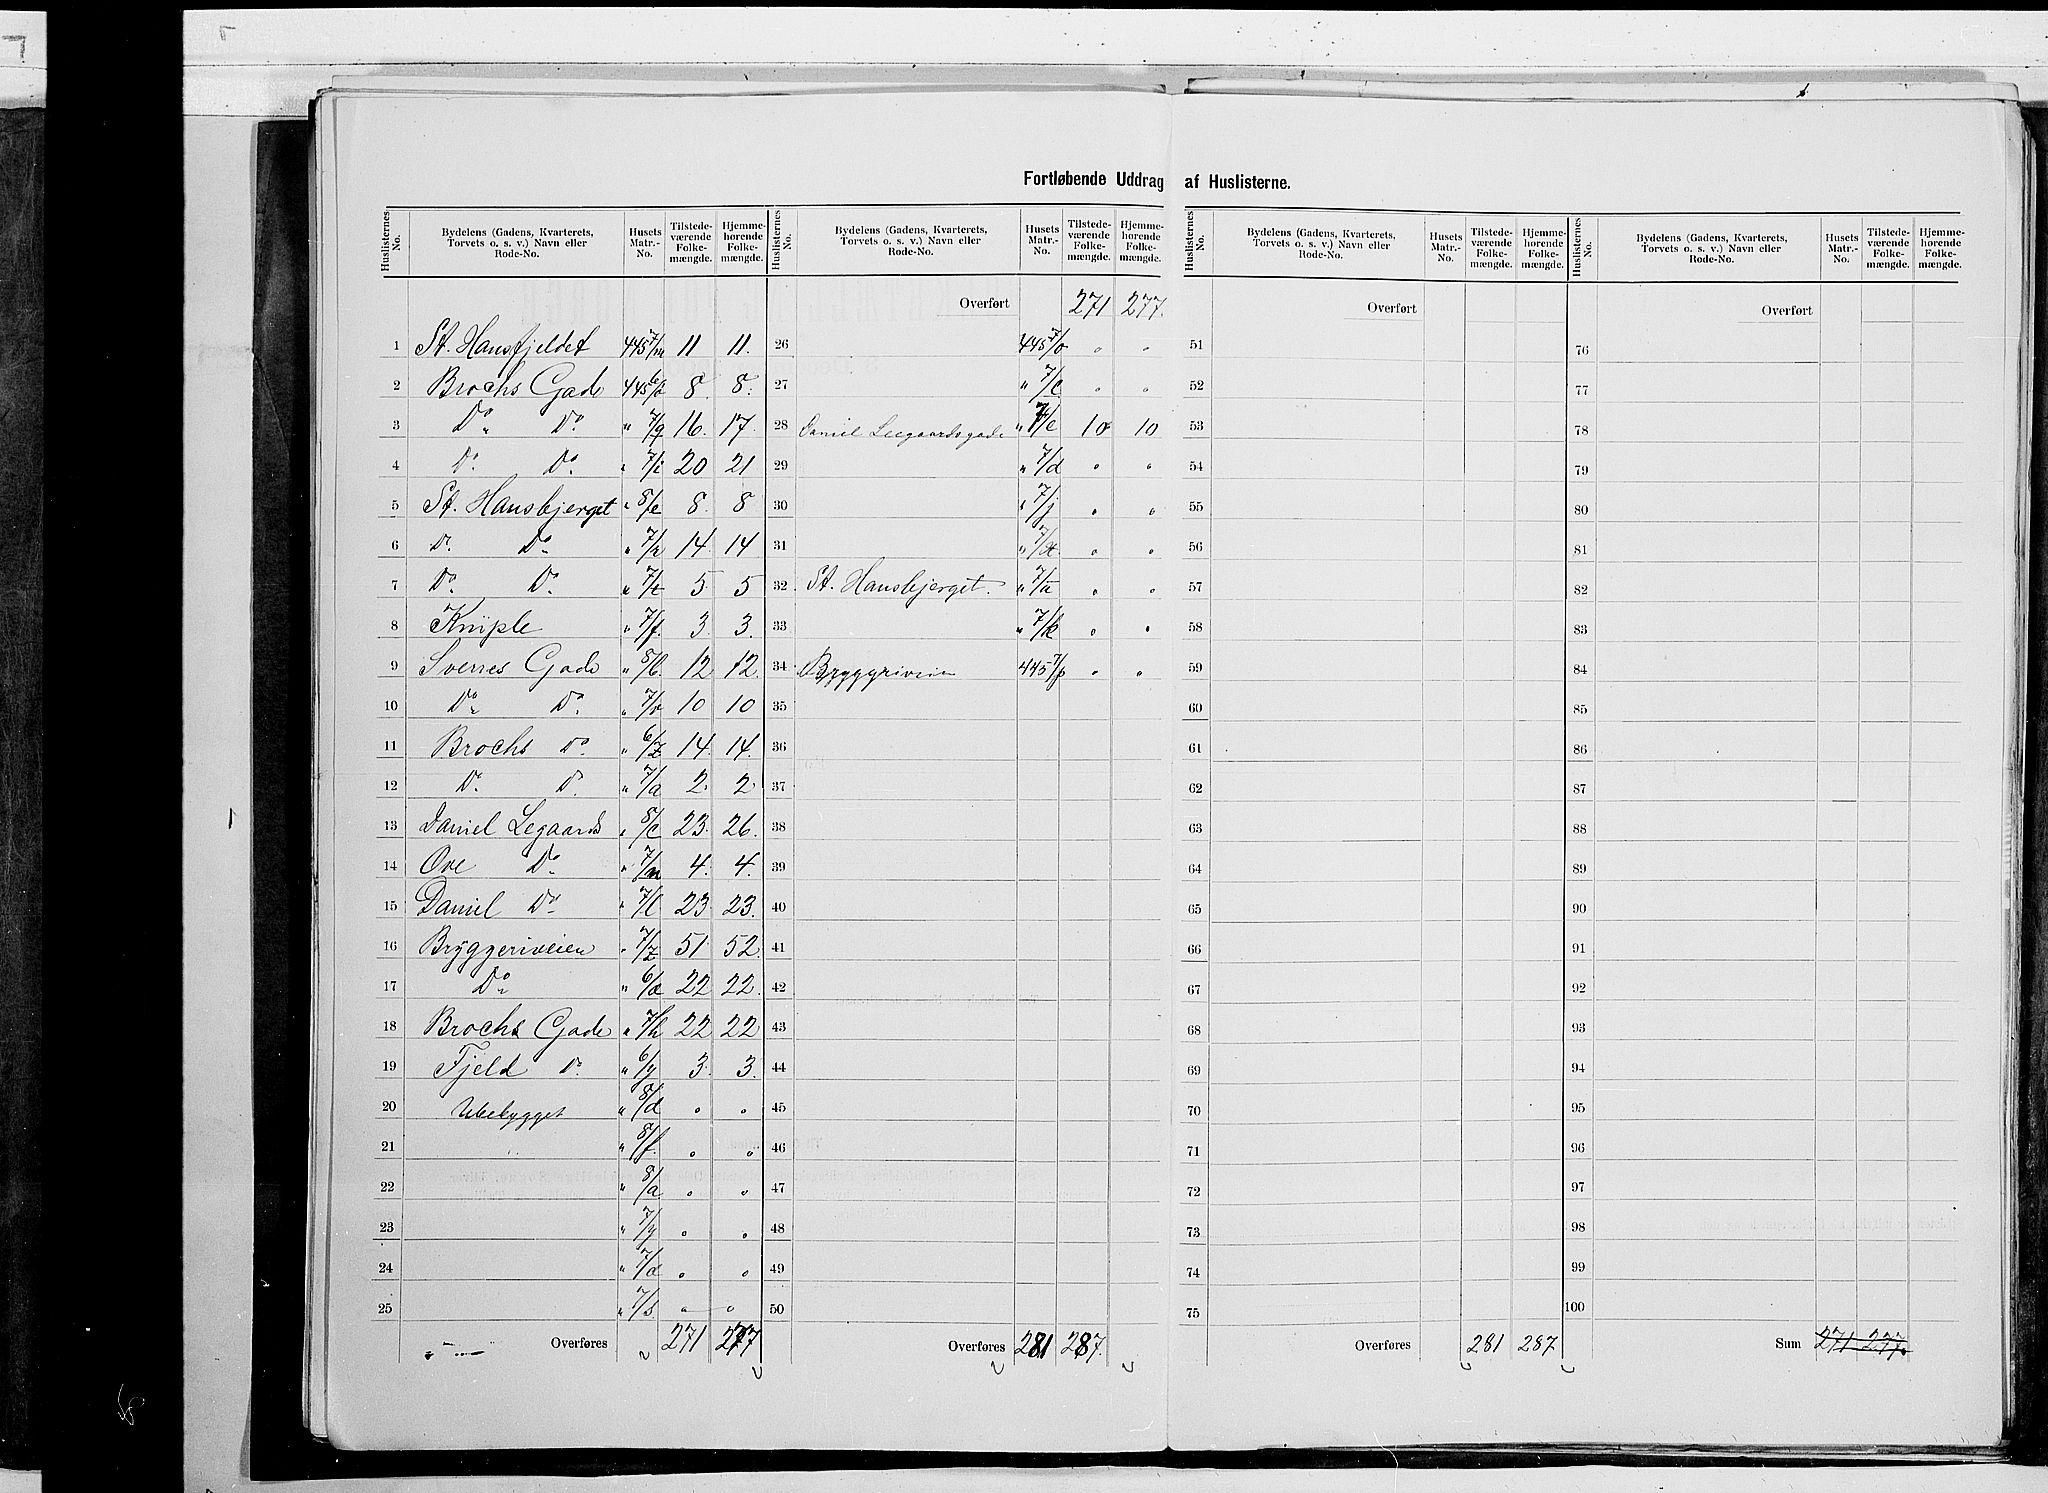 Fortløbende Uddrag af Huslisterne.
Huslisternes No. Bydelens (Gadens, Kvarterets, Torvets o. s. v.) Navn eller Rode-No. Husets Matr.-No. Tilstedeværende Folkemængde. Hjemmehørende Folkemængde.
1 St. Hansfjeldet 445 7/m 11 11.
2 Brochs Gade 445 6/ø 8. 8.
3 Do Do " 7/g 16. 17.
4 Do. Do. " 7/i 20 21
5 St. Hansbjerget " 8/e 8. 8
6 Do. Do " 7/r 14. 14
7 Do. Do. " 7/t 5. 5
8 Kniple " 7/f. 3. 3.
9 Sverres Gade " 8/b. 12 12.
10 Do Do. " 7/v 10 10
11 Brochs Do. " 6/z 14. 14.
12 Do. D. " 7/a 2. 2.
13 Daniel Legaards " 8/c 23. 26.
14 Ove Do " 7/n 4. 4.
15 Daniel Do " 7/l 23. 23.
16 Bryggeriveien " 7/z 51. 52.
17 Do " 6/æ 22 22.
18 Brochs Gade " 7/h 22 22
19 Fjeld Do. " 6/y 3. 3.
20 Ubebygget " 8/d " "
21 " 8/f. " "
22 " 8/a " "
23 " 7/y " "
24 " 7/æ " "
25 " 7/s " "
Overføres 271 277
Huslisternes No. Bydelens (Gadens, Kvarterets, Torvets o. s. v.) Navn eller Rode-No. Husets Matr.-No. Tilstedeværende Folkemængde. Hjemmehørende Folkemængde.
Overført 271 277.
26 445 7/o " "
27 " 7/c " "
28 Daniel Leegaardsgade " 7/e 10 10
29 " 7/d " "
30 " 7/j " "
31 " 7/x " "
32 St. Hansbjerget. " 7/u " "
33 " 7/k " "
34 Bryggeriveien 445 7/p " "
35
36
37
38
39
40
41
42
43
44
45
46
47
48
49
50
Overføres 281 287.
Huslisternes No. Bydelens (Gadens, Kvarterets, Torvets o. s. v.) Navn eller Rode-No. Husets Matr.-No. Tilstedeværende Folkemængde. Hjemmehørende Folkemængde.
Overført
51
52
53
54
55
56
57
58
59
60
61
62
63
64
65
66
67
68
69
70
71
72
73
74
75
Overføres 281 287
Huslisternes No. Bydelens (Gadens, Kvarterets, Torvets o. s. v.) Navn eller Rode-No. Husets Matr.-No. Tilstedeværende Folkemængde. Hjemmehørende Folkemængde.
Overført
76
77
78
79
80
81
82
83
84
85
86
87
88
89
90
91
92
93
94
95
96
97
98
99
100
Sum 271 277.